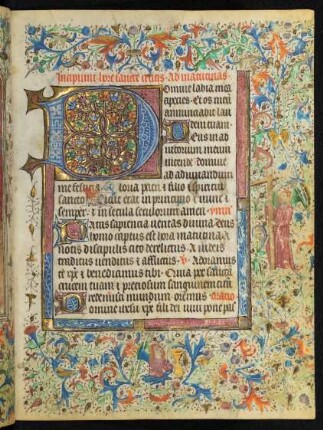 Incipiunt hore sancte crucis. Ad matutinas
Domine labia mea
aperies. Et os meū
annunciabit lau
dem tuam.
Deus in ad
iutorium meum
intende domine
ad adiuuandum
me festina. Gloria patri et filio et spiritui
sancto. Sicut erat in principio et nunc et
semper et in secula seculorum amen.
Patris sapiencia ueritas diuina deus
homo captus est hora matutina A
notis discipulis cito derelictus A iudeis
traditus uenditus et afflictus. Adoramus
te xp̄e et benedicimus tibi. Quia per sanctā
crucem tuam et preciosum sanguinem tuū
redemisti mundum oremus. oratio
Domine iesu xp̄e fili dei uiui pone pas